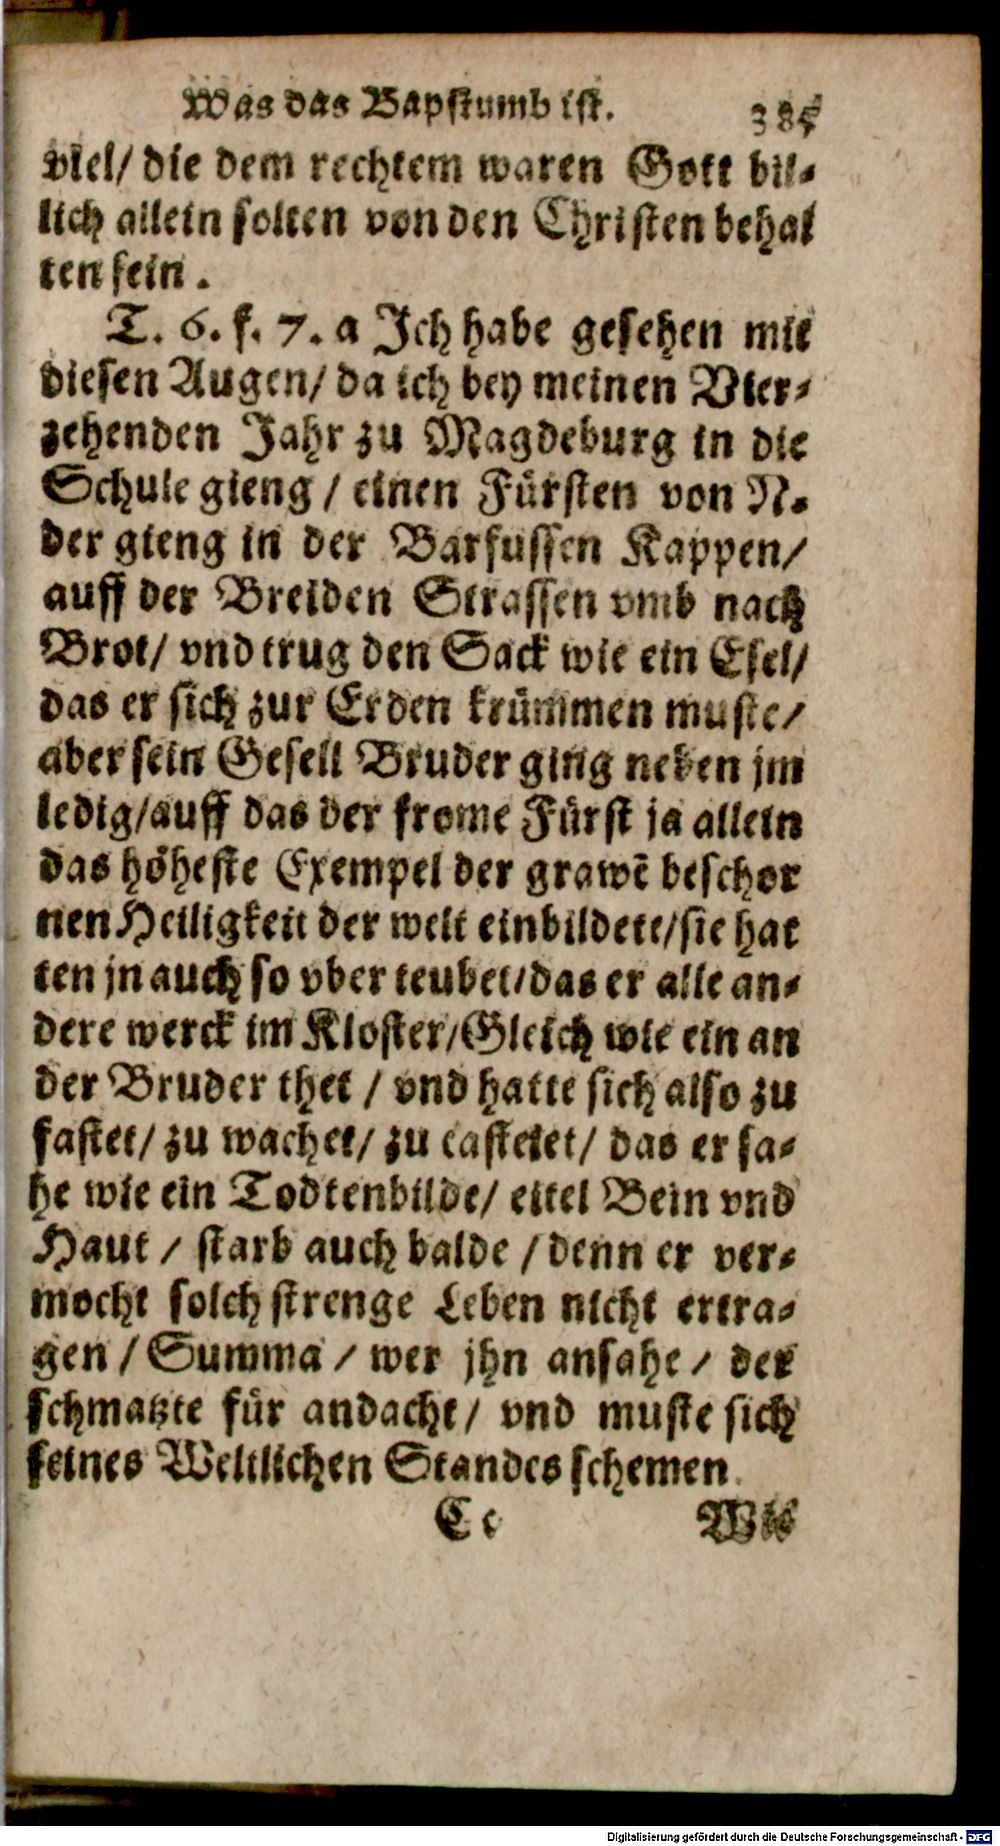 Was das Bapstumb ist. 385
viel/ die dem rechtem waren Gott bil-
lich allein solten von den Christen behal
ten sein.
T. 6. f. 7. a Ich habe gesehen mit
diesen Augen/ da ich bey meinen Vier-
zehenden Jahr zu Magdeburg in die
Schule gieng / einen Fürsten von N.
der gieng in der Barfussen Kappen/
auff der Breiden Strassen vmb nach
Brot/ vnd trug den Sack wie ein Esel/
das er sich zur Erden krümmen muste/
aber sein Gesell Bruder ging neben jm
ledig/auff das der frome Fürst ja allein
das höheste Exempel der grawē beschor
nen Heiligkeit der welt einbildete/sie hat
ten jn auch so vber teubet/das er alle an-
dere werck im Kloster/Gleich wie ein an
der Bruder thet / vnd hatte sich also zu
fastet/ zu wachet/ zu casteiet/ das er sa-
he wie ein Todtenbilde/ eitel Bein vnd
Haut / starb auch balde / denn er ver-
mocht solch strenge Leben nicht ertra-
gen / Summa / wer jhn ansahe / der
schmatzte für andacht/ vnd muste sich
seines Weltlichen Standes schemen
Cc Wie
Digitalisierung gefördert durch die Deutsche Forschungsgemeinschaft - DFG